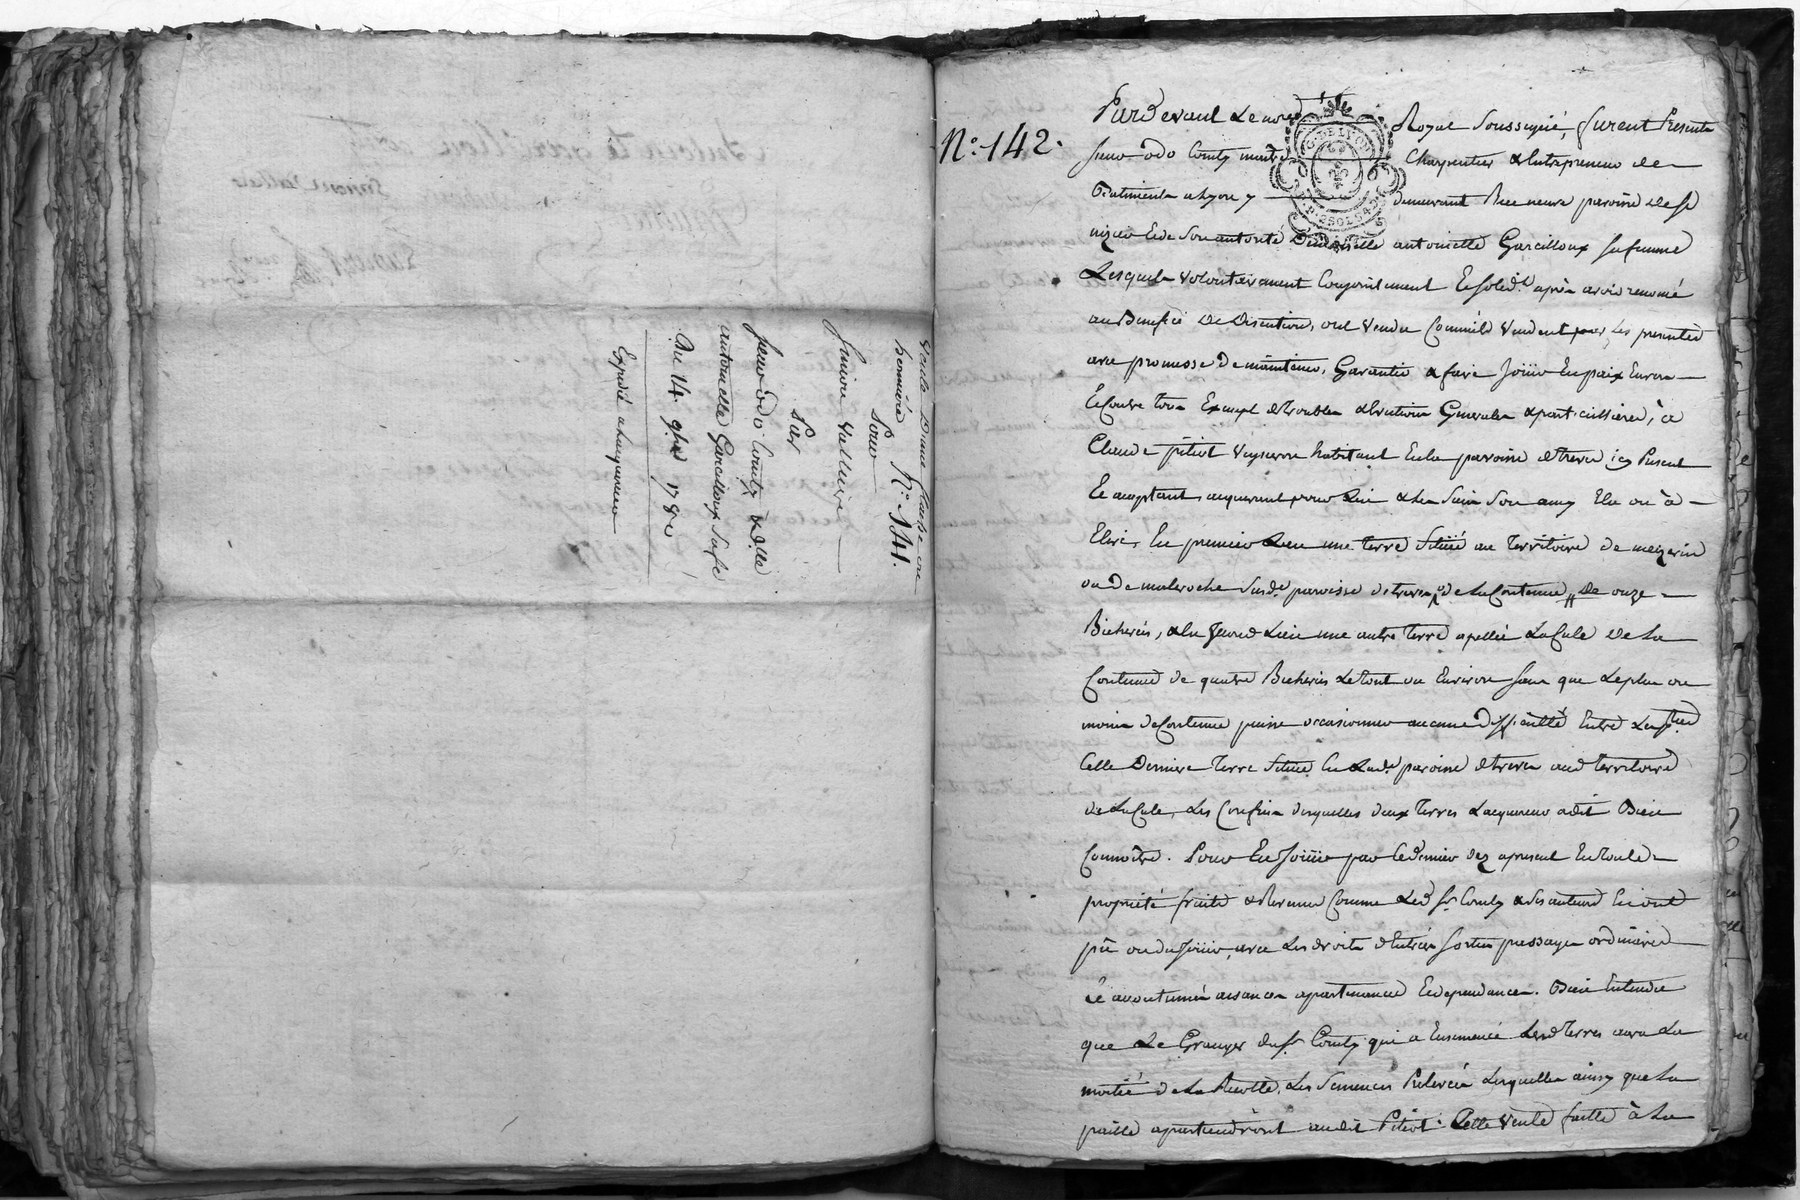 Vente D'une
hermiere N.º 141.
Pour
Simion Valluire
Par
sieur odo Comty & d.lle
antoinette Garcilloux Sa fe
Du 14. 9bre 1780
Expedié a l'acquereur
N.º 142.
Pardevant Le no.re Royal Soussigné, furent Presents
sieur odo Comty maitre Charpentier & Entrepreneur de
Batiments a Lyon y demeurant Rue neuve paroisse de St
nizier Et de Son autorité Demoiselle antoinette Garcilloux Sa femme
Lesquels volontairement Conjointement & solid.t après avoir renoncé
au Benefice De Discution, ont vendu Comme ils vendent par Les presentes
avec promesse De maintenir, Garantir & faire Joüir En paix Envers
Et Contre tous Excepté de troubles & Evictions Generales & particulieres, à
Claude pitiot vigneron habitant En la paroisse de treves icy Present
Et acceptant acquereur pour Lui & les Siens Son amy Elu ou à
Elire, En premier Lieu une terre Située au Territoire de mezerin
ou De maleroche Sus d.e paroisse de treves, de la Contenue De onze
Bicherées, & En Second Lieu une autre terre apellée La Cule De La
Contenue de quatre Bicherées Le tout ou Environ Sans que Le plus ou
moins de Contenue puisse occasionner aucune difficulté Entre Les parties
Cette Derniere Terre Située En Lad.e paroisse de treves aud territoire
de La Cule, Les Confins desquelles deux Terres L'acquereur a dit Bien
Connoitre. Pour En Joüir par Ce dernier dez apresent En toute
propriété fruits & Revenus Comme Led Sr Comty & Ses auteurs En ont
pû ou du Joüir, avec Les droits d'Entrées Sorties passages ordinaires
Et accoutumés aisances apartenances & dependances. Bien Entendu
que Le Granger du Sr Comty qui a Ensemencé Lesd Terres aura La
moitié de La Recolte, Les Semences Prelevées Lesquelles ainsy que La
paille apartiendront audit Pitiot. Cette Vente faitte à La